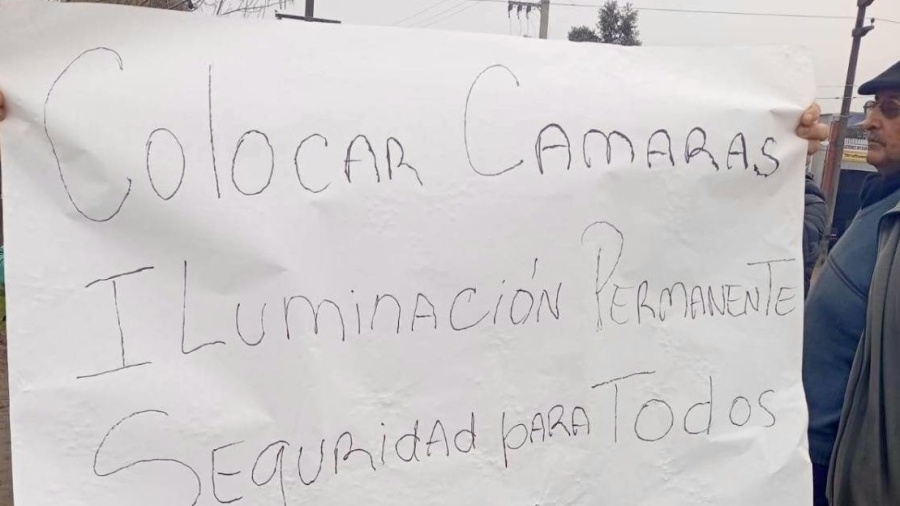 Colocar Camaras
Iluminación Permanente
Seguridad para Todos